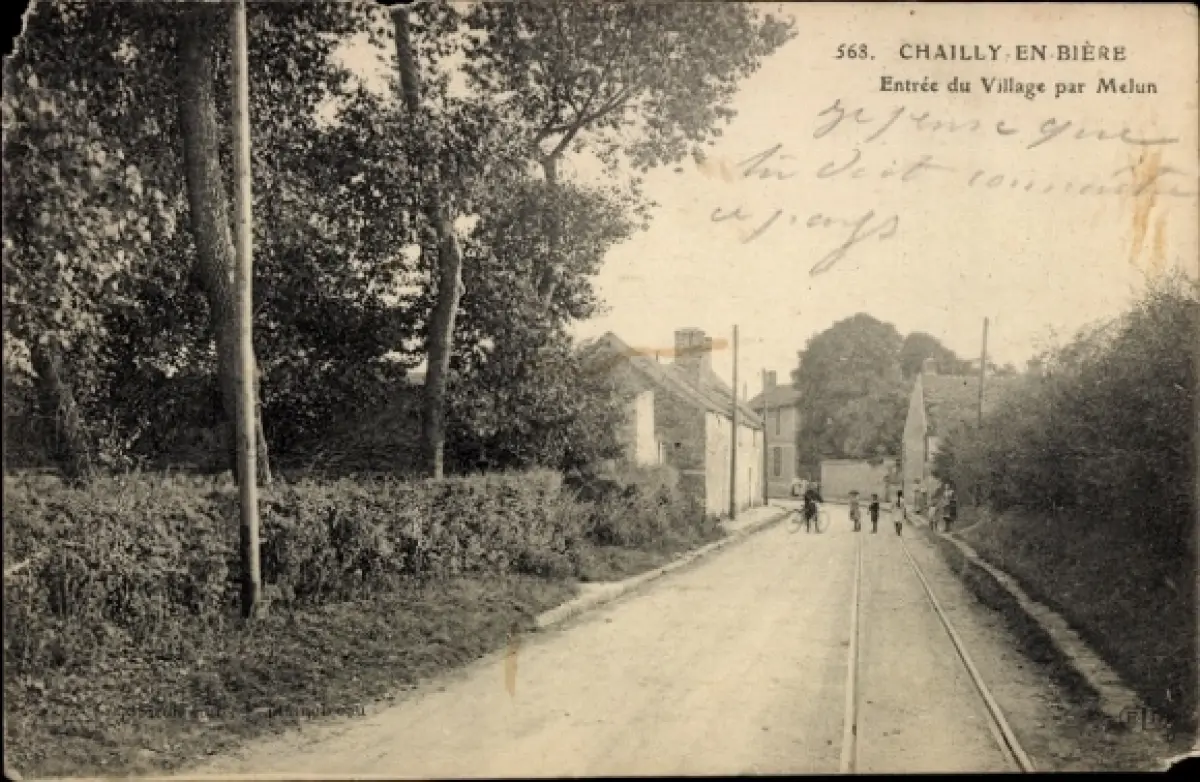 568. CHAILLY-EN-BIÈRE
Entrée du Village par Melun
Je pense que
tu doit connaitre
ce pays